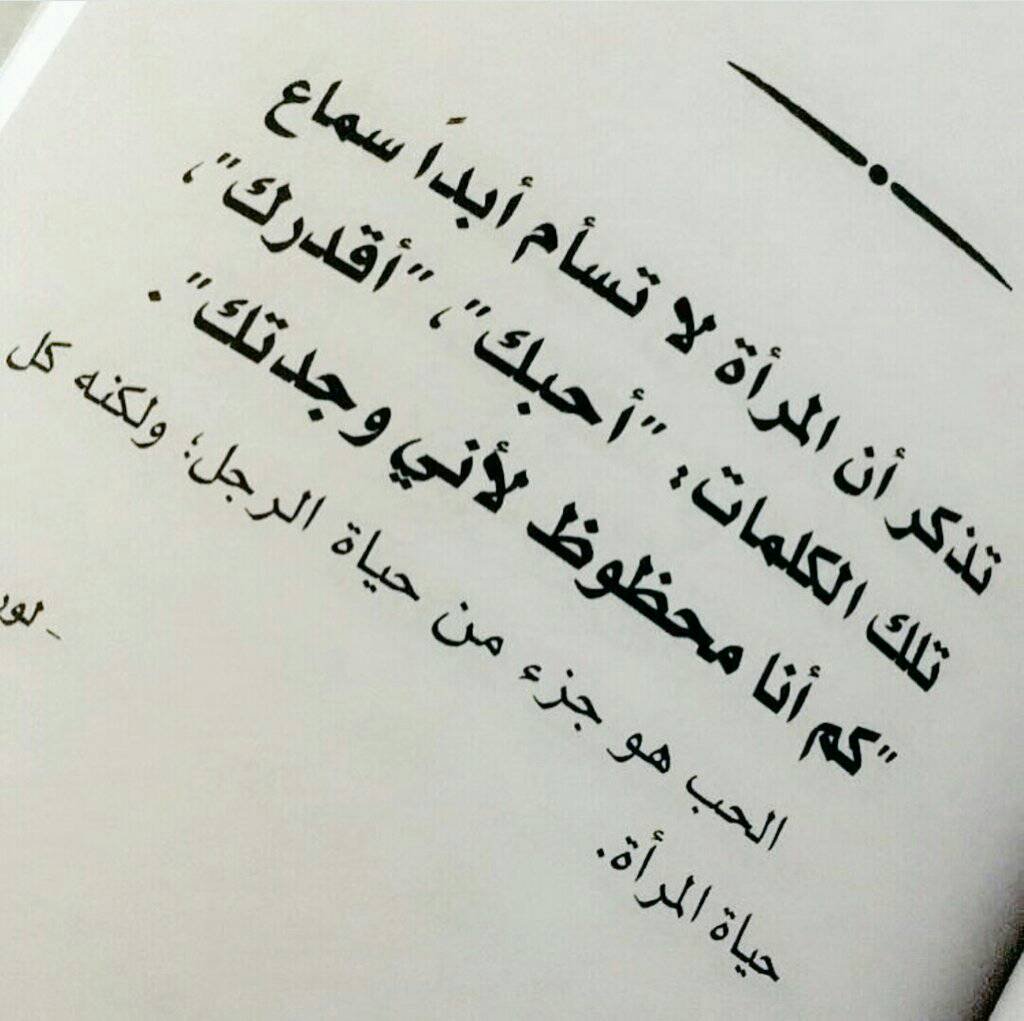 تذكر أن المرأة لا تسأم أبداً سماع
تلك الكلمات: "أحبك"، "أقدرك"،
"كم أنا محظوظ لأني وجدتك".
الحب هو جزء من حياة الرجل؛ ولكنه كل
حياة المرأة.